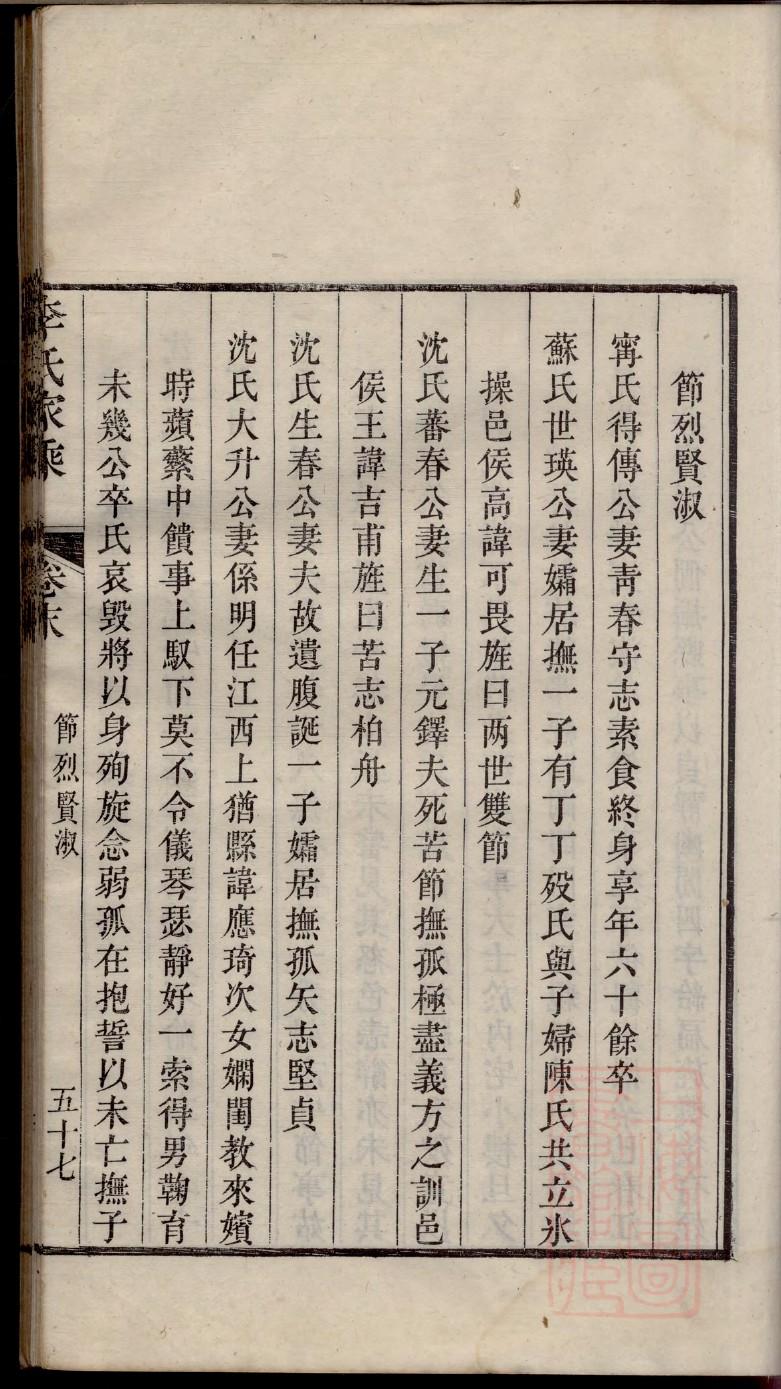 節烈賢淑
甯氏得傳公妻靑春守志素食終身享年六十餘卒
蘇氏世瑛公妻孀居撫一子有丁丁殁氏與子婦陳氏共立氷
操邑侯高諱可畏旌曰两世雙節
沈氏蕃春公妻生一子元鐸夫死苦節撫孤極盡義方之訓邑
侯王諱吉甫旌曰苦志柏舟
沈氏生春公妻夫故遺腹誕一子孀居撫孤矢志堅貞
沈氏大升公妻係明任江西上猶縣諱應琦次女嫻閨教來嬪
時蘋蘩中饋事上馭下莫不令儀琴瑟靜好一索得男鞠育
未幾公卒氏哀毀將以身殉旋念弱孤在抱誓以未亡撫子
李氏家乘 卷末 節烈賢淑 五十七